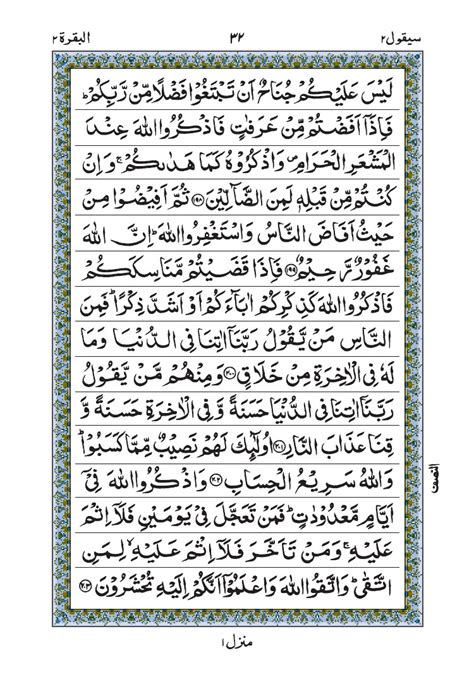 سيقول ٢ ٣٢ البقرة ٢
لَيْسَ عَلَيْكُمْ جُنَاحٌ اَنْ تَبْتَغُوْا فَضْلًا مِّنْ رَّبِّكُمْ ؕ
فَاِذَاۤ اَفَضْتُمْ مِّنْ عَرَفٰتٍ فَاذْكُرُوا اللّٰهَ عِنْدَ
الْمَشْعَرِ الْحَرَامِ ۪ وَاذْكُرُوْهُ كَمَا هَدٰىكُمْ ۚ وَاِنْ
كُنْتُمْ مِّنْ قَبْلِهٖ لَمِنَ الضَّآلِّيْنَ ﴿۱۹۸﴾ ثُمَّ اَفِيْضُوْا مِنْ
حَيْثُ اَفَاضَ النَّاسُ وَاسْتَغْفِرُوا اللّٰهَ ؕ اِنَّ اللّٰهَ
غَفُوْرٌ رَّحِيْمٌ ﴿۱۹۹﴾ فَاِذَا قَضَيْتُمْ مَّنَاسِكَكُمْ
فَاذْكُرُوا اللّٰهَ كَذِكْرِكُمْ اٰبَآءَكُمْ اَوْ اَشَدَّ ذِكْرًا ؕ فَمِنَ
النَّاسِ مَنْ يَّقُوْلُ رَبَّنَاۤ اٰتِنَا فِى الدُّنْيَا وَمَا
لَهٗ فِى الْاٰخِرَةِ مِنْ خَلَاقٍ ﴿۲۰۰﴾ وَمِنْهُمْ مَّنْ يَّقُوْلُ
رَبَّنَاۤ اٰتِنَا فِى الدُّنْيَا حَسَنَةً وَّ فِى الْاٰخِرَةِ حَسَنَةً وَّ
قِنَا عَذَابَ النَّارِ ﴿۲۰۱﴾ اُولٰٓئِكَ لَهُمْ نَصِيْبٌ مِّمَّا كَسَبُوْا ؕ
وَاللّٰهُ سَرِيْعُ الْحِسَابِ ﴿۲۰۲﴾ وَاذْكُرُوا اللّٰهَ فِىْۤ
النصف
اَيَّامٍ مَّعْدُوْدٰتٍ ؕ فَمَنْ تَعَجَّلَ فِىْ يَوْمَيْنِ فَلَاۤ اِثْمَ
عَلَيْهِ ۚ وَمَنْ تَاَخَّرَ فَلَاۤ اِثْمَ عَلَيْهِ ۙ لِمَنِ
اتَّقٰى ؕ وَاتَّقُوا اللّٰهَ وَاعْلَمُوْۤا اَنَّكُمْ اِلَيْهِ تُحْشَرُوْنَ ﴿۲۰۳﴾
منزل ١